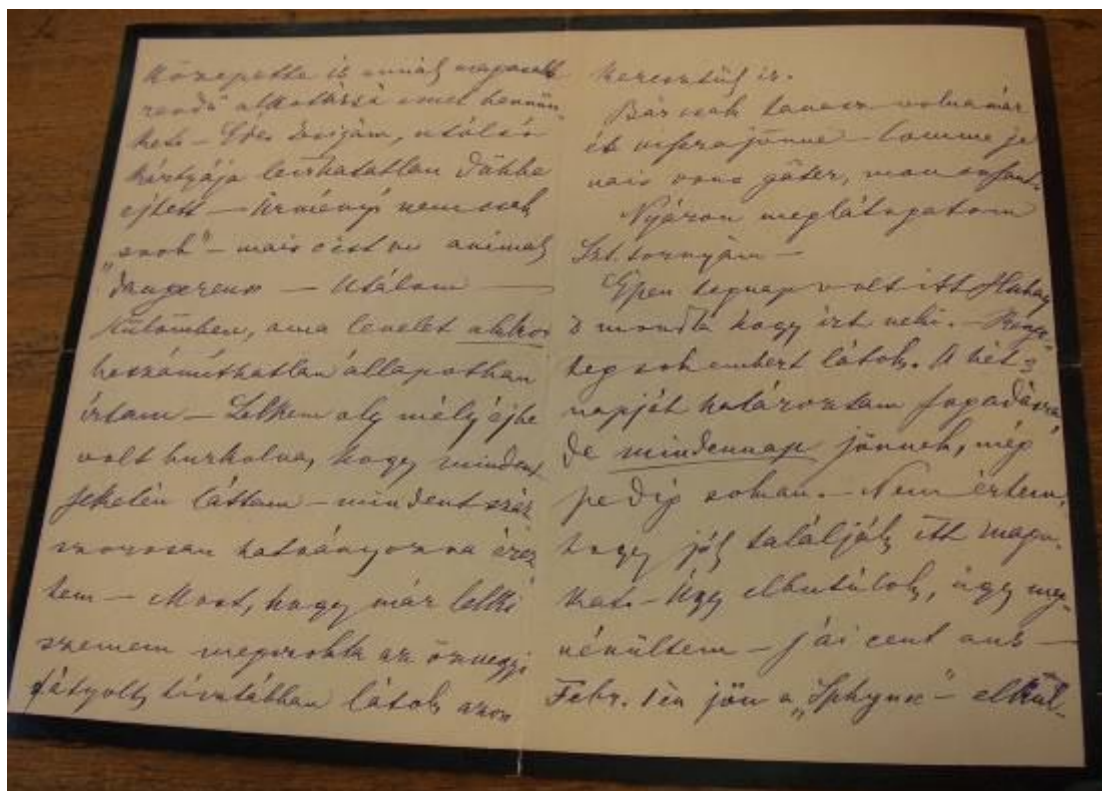 közepette is annál magasabb
rendű alkotássá emel bennün-
ket. – Édes Zsigám, utolsó
kártyája leírhatatlan dühbe
ejtett – Ürményi nem csak
„snob" – mais c'est un animal
dangereux – Utálom –
Külömben, ama levelet akkor
beszámíthatlan állapotban
írtam – Lelkem oly mély éjbe
volt burkolva, hogy mindent
feketén láttam – mindent száz
szorosan hatványozva érez
tem – Most, hogy már lelki
szemem megszokta az özvegyi
fátyolt, tisztábban látok azon
keresztül is.
Bár csak tavasz volna már
és visszajönne – Comme je
vais vous gâter, mon enfant.
Nyáron meglátogatom
Szt. tornyám –
Épen tegnap volt itt Hubay
s mondta hogy írt neki. – Renge-
teg sok embert látok. A hét 3
napját határoztam fogadásra,
de mindennap jönnek, még
pedig sokan. – Nem értem,
hogy jól találják itt magu-
kat. – Úgy elbutúlok, úgy meg-
vénültem – j'ai cent ans –
Febr. 1én jön a „Sphynx" – elkül-